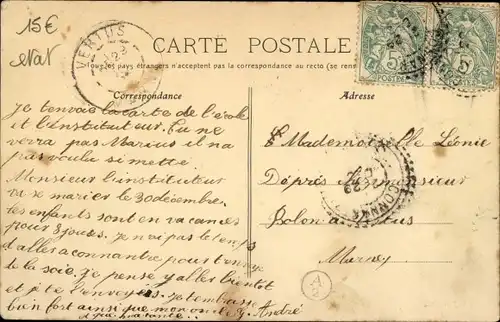 15€
etat
VERTUS
CARTE POSTALE
Tous les pays étrangers n'acceptent pas la correspondance au recto (se rens
Correspondance
Adresse
Je t'envois la carte de l'école
et l'instituteur. Tu ne
verra pas Marius il n'a
pas voulu si mettre.
Monsieur l'instituteur
va se marier le 30 décembre.
les enfants sont en vacances
pour 8 jours. J'ai pas le temps
d'alles a connantre pour t'envoye
de la soie. Je pense y alles bientot
et je te l'envoyeré. Je t'embrasse
bien fort ainsi que mon oncle. André
Mademoiselle Léonie
Dépris
Marne
5
5